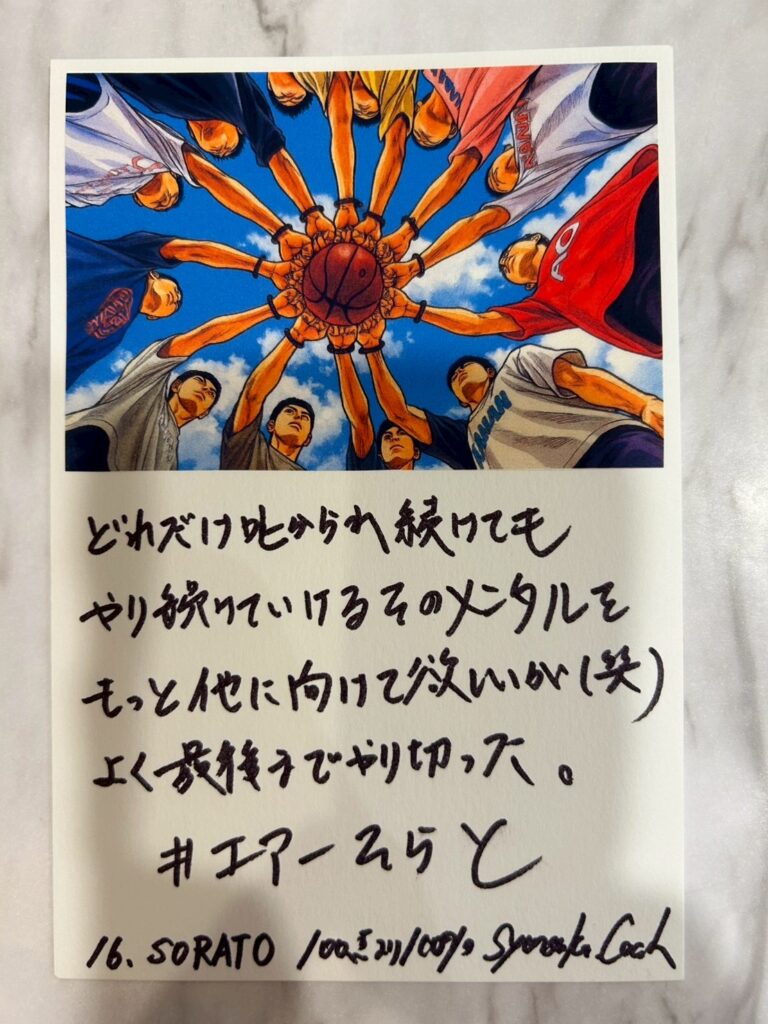 どれだけ叱られ続けても
やり続けていけるそのメンタルを
もっと他に向けて欲しいが(笑)
よく最後までやり切った。
#エアーそらと
16. SORATO Coach